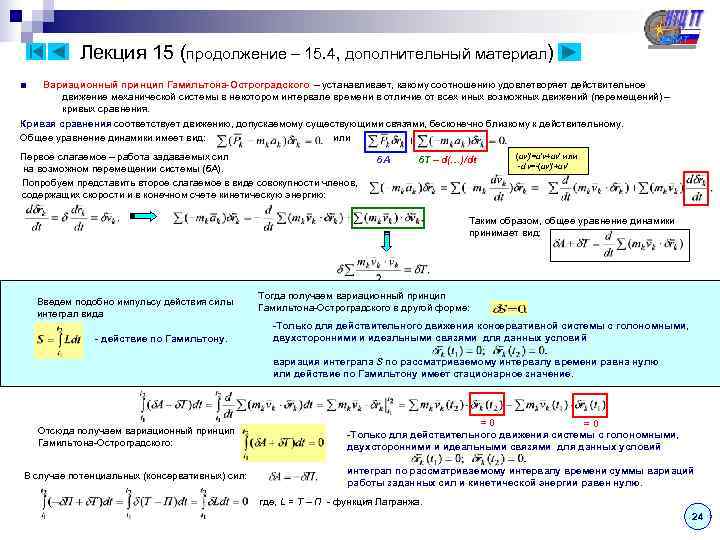 НТЦ ТТ
Лекция 15 (продолжение – 15.4, дополнительный материал)
■ Вариационный принцип Гамильтона-Остроградского – устанавливает, какому соотношению удовлетворяет действительное
движение механической системы в некотором интервале времени в отличие от всех иных возможных движений (перемещений) –
кривых сравнения.
Кривая сравнения соответствует движению, допускаемому существующими связями, бесконечно близкому к действительному.
Общее уравнение динамики имеет вид: ∑(P̄ₖ − mₖāₖ)δr̄ₖ = 0. или
Первое слагаемое – работа задаваемых сил
на возможном перемещении системы (δA).
δA
δT – d(…)/dt
(uv)'=u'v+uv' или
-u'v=-(uv)'+uv'
Попробуем представить второе слагаемое в виде совокупности членов,
содержащих скорости и в конечном счете кинетическую энергию:
dδr̄ₖ/dt = δ dr̄ₖ/dt = δv̄ₖ.
Таким образом, общее уравнение динамики
принимает вид:
δA + δT = d/dt ∑(mₖv̄ₖ · δr̄ₖ)
δ∑ mₖv̄ₖ · v̄ₖ/2 = δT.
Введем подобно импульсу действия силы
интеграл вида
S = ∫ Ldt
- действие по Гамильтону.
Тогда получаем вариационный принцип
Гамильтона-Остроградского в другой форме:
δS = 0.
-Только для действительного движения консервативной системы с голономными,
двухсторонними и идеальными связями для данных условий
δr̄ₖ(t₁) = 0; δr̄ₖ(t₂) = 0.
вариация интеграла S по рассматриваемому интервалу времени равна нулю
или действие по Гамильтону имеет стационарное значение.
= 0
= 0
Отсюда получаем вариационный принцип
Гамильтона-Остроградского:
∫(δA + δT)dt = 0
-Только для действительного движения системы с голономными,
двухсторонними и идеальными связями для данных условий
δr̄ₖ(t₁) = 0; δr̄ₖ(t₂) = 0.
интеграл по рассматриваемому интервалу времени суммы вариаций
работы заданных сил и кинетической энергии равен нулю.
В случае потенциальных (консервативных) сил:
δA = −δП.
∫(−δП + δT)dt = ∫δ(T − П)dt = ∫δLdt = δ∫Ldt = 0.
где, L = T – П - функция Лагранжа.
24